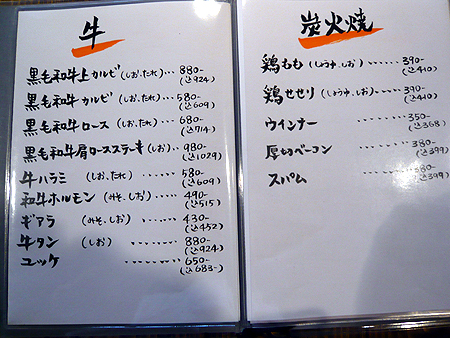 牛
黒毛和牛上カルビ(しお、たれ)… 880-
(込924)
黒毛和牛カルビ(しお、たれ)… 580-
(込609)
黒毛和牛ロース(しお、たれ)…… 680-
(込714)
黒毛和牛肩ロースステーキ(しお)… 980-
(込1029)
牛ハラミ (しお、たれ) …… 580-
(込609)
和牛ホルモン(みそ、しお)…… 490-
(込515)
ギアラ (みそ、しお) …… 430-
(込452)
牛タン (しお) ……… 880-
(込924)
ユッケ ……… 650-
(込683-)
炭火焼
鶏もも(しょうゆ、しお)…… 390-
(込410)
鶏せせり(しょうゆ、しお)…… 390-
(込410)
ウインナー ……… 350-
(込368)
厚切ベーコン ……… 380-
(込399)
スパム ……… 380-
(込399)